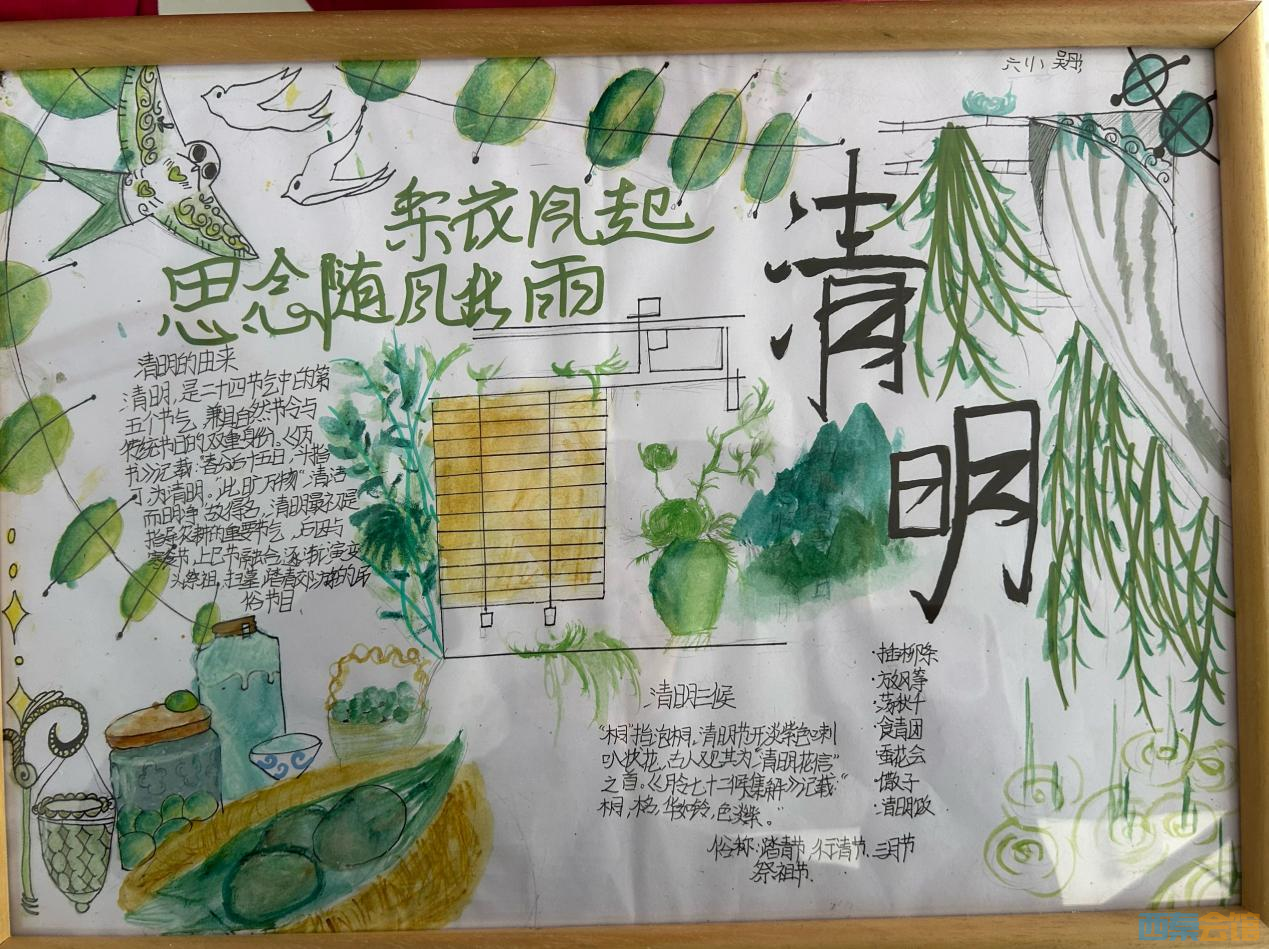 六小
清明
梨花风起
思念随风化雨
清明的由来
清明,是二十四节气中的第
五个节气,兼具自然节令与
传统节日的双重身份。《历
书》记载:“春分后十五日,斗指
丁为清明。”此时万物“清洁
而明净”故得名。清明最初是
指导农耕的重要节气,后因与
寒食节,上巳节融合,逐渐演变
祭祖,扫墓,踏青郊游的
俗节日.
·插柳条
·放风筝
·荡秋千
·食青团
·蚕花会
·馓子
·清明
清明三候
“桐”指泡桐,清明节开淡紫色喇
叭状花,古人视其为“清明花信”
之首。《月令七十二候集解》记载:“
桐,木名,华如铃,色淡紫。
俗称:踏青节,行清节.三月节
祭祖节.
西秦会馆